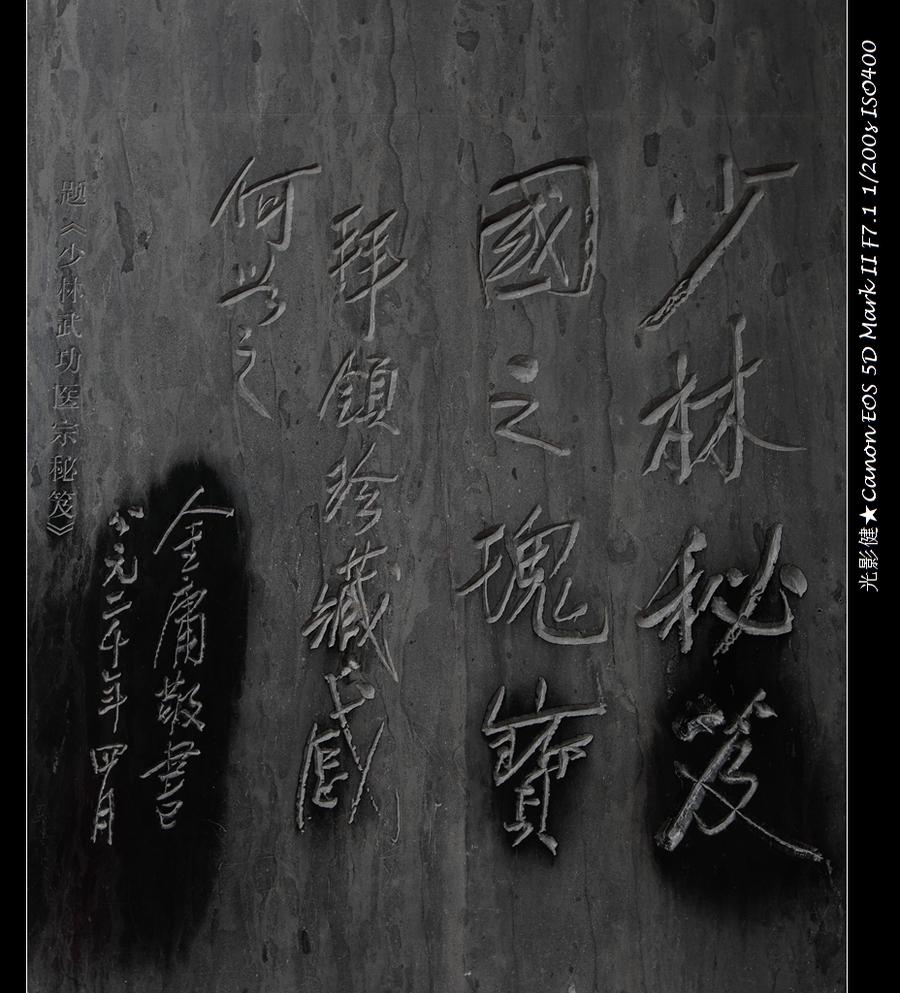 少林秘笈
國之瑰寶
拜領珍藏
何之
金庸敬書
公元二千年四月
题《少林武功医宗秘笈》
光影健★Canon EOS 5D Mark II F7.1 1/200s ISO400